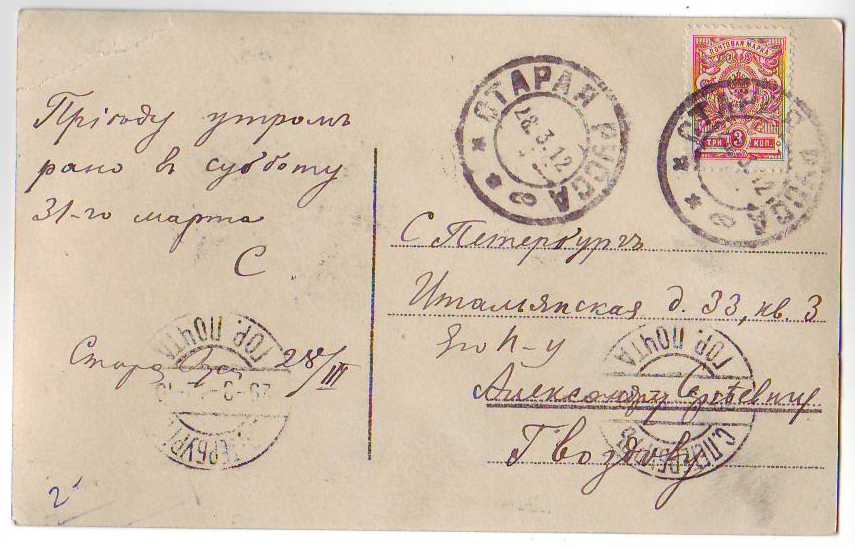 Пріѣду утромъ
рано въ субботу
31-го марта
С
Стара Русса 28/III
2-
СТАРАЯ РУССА
28.3.12
ПОЧТОВАЯ МАРКА
ТРИ 3 КОП.
СТАРАЯ РУССА
С Петербургъ
Итальянская д. 33, кв. 3
Его
Александру Сергѣевичу
Гвоздеву
ГОР. ПОЧТА
ГОР. ПОЧТА
С.ПЕТЕРБУРГЪ